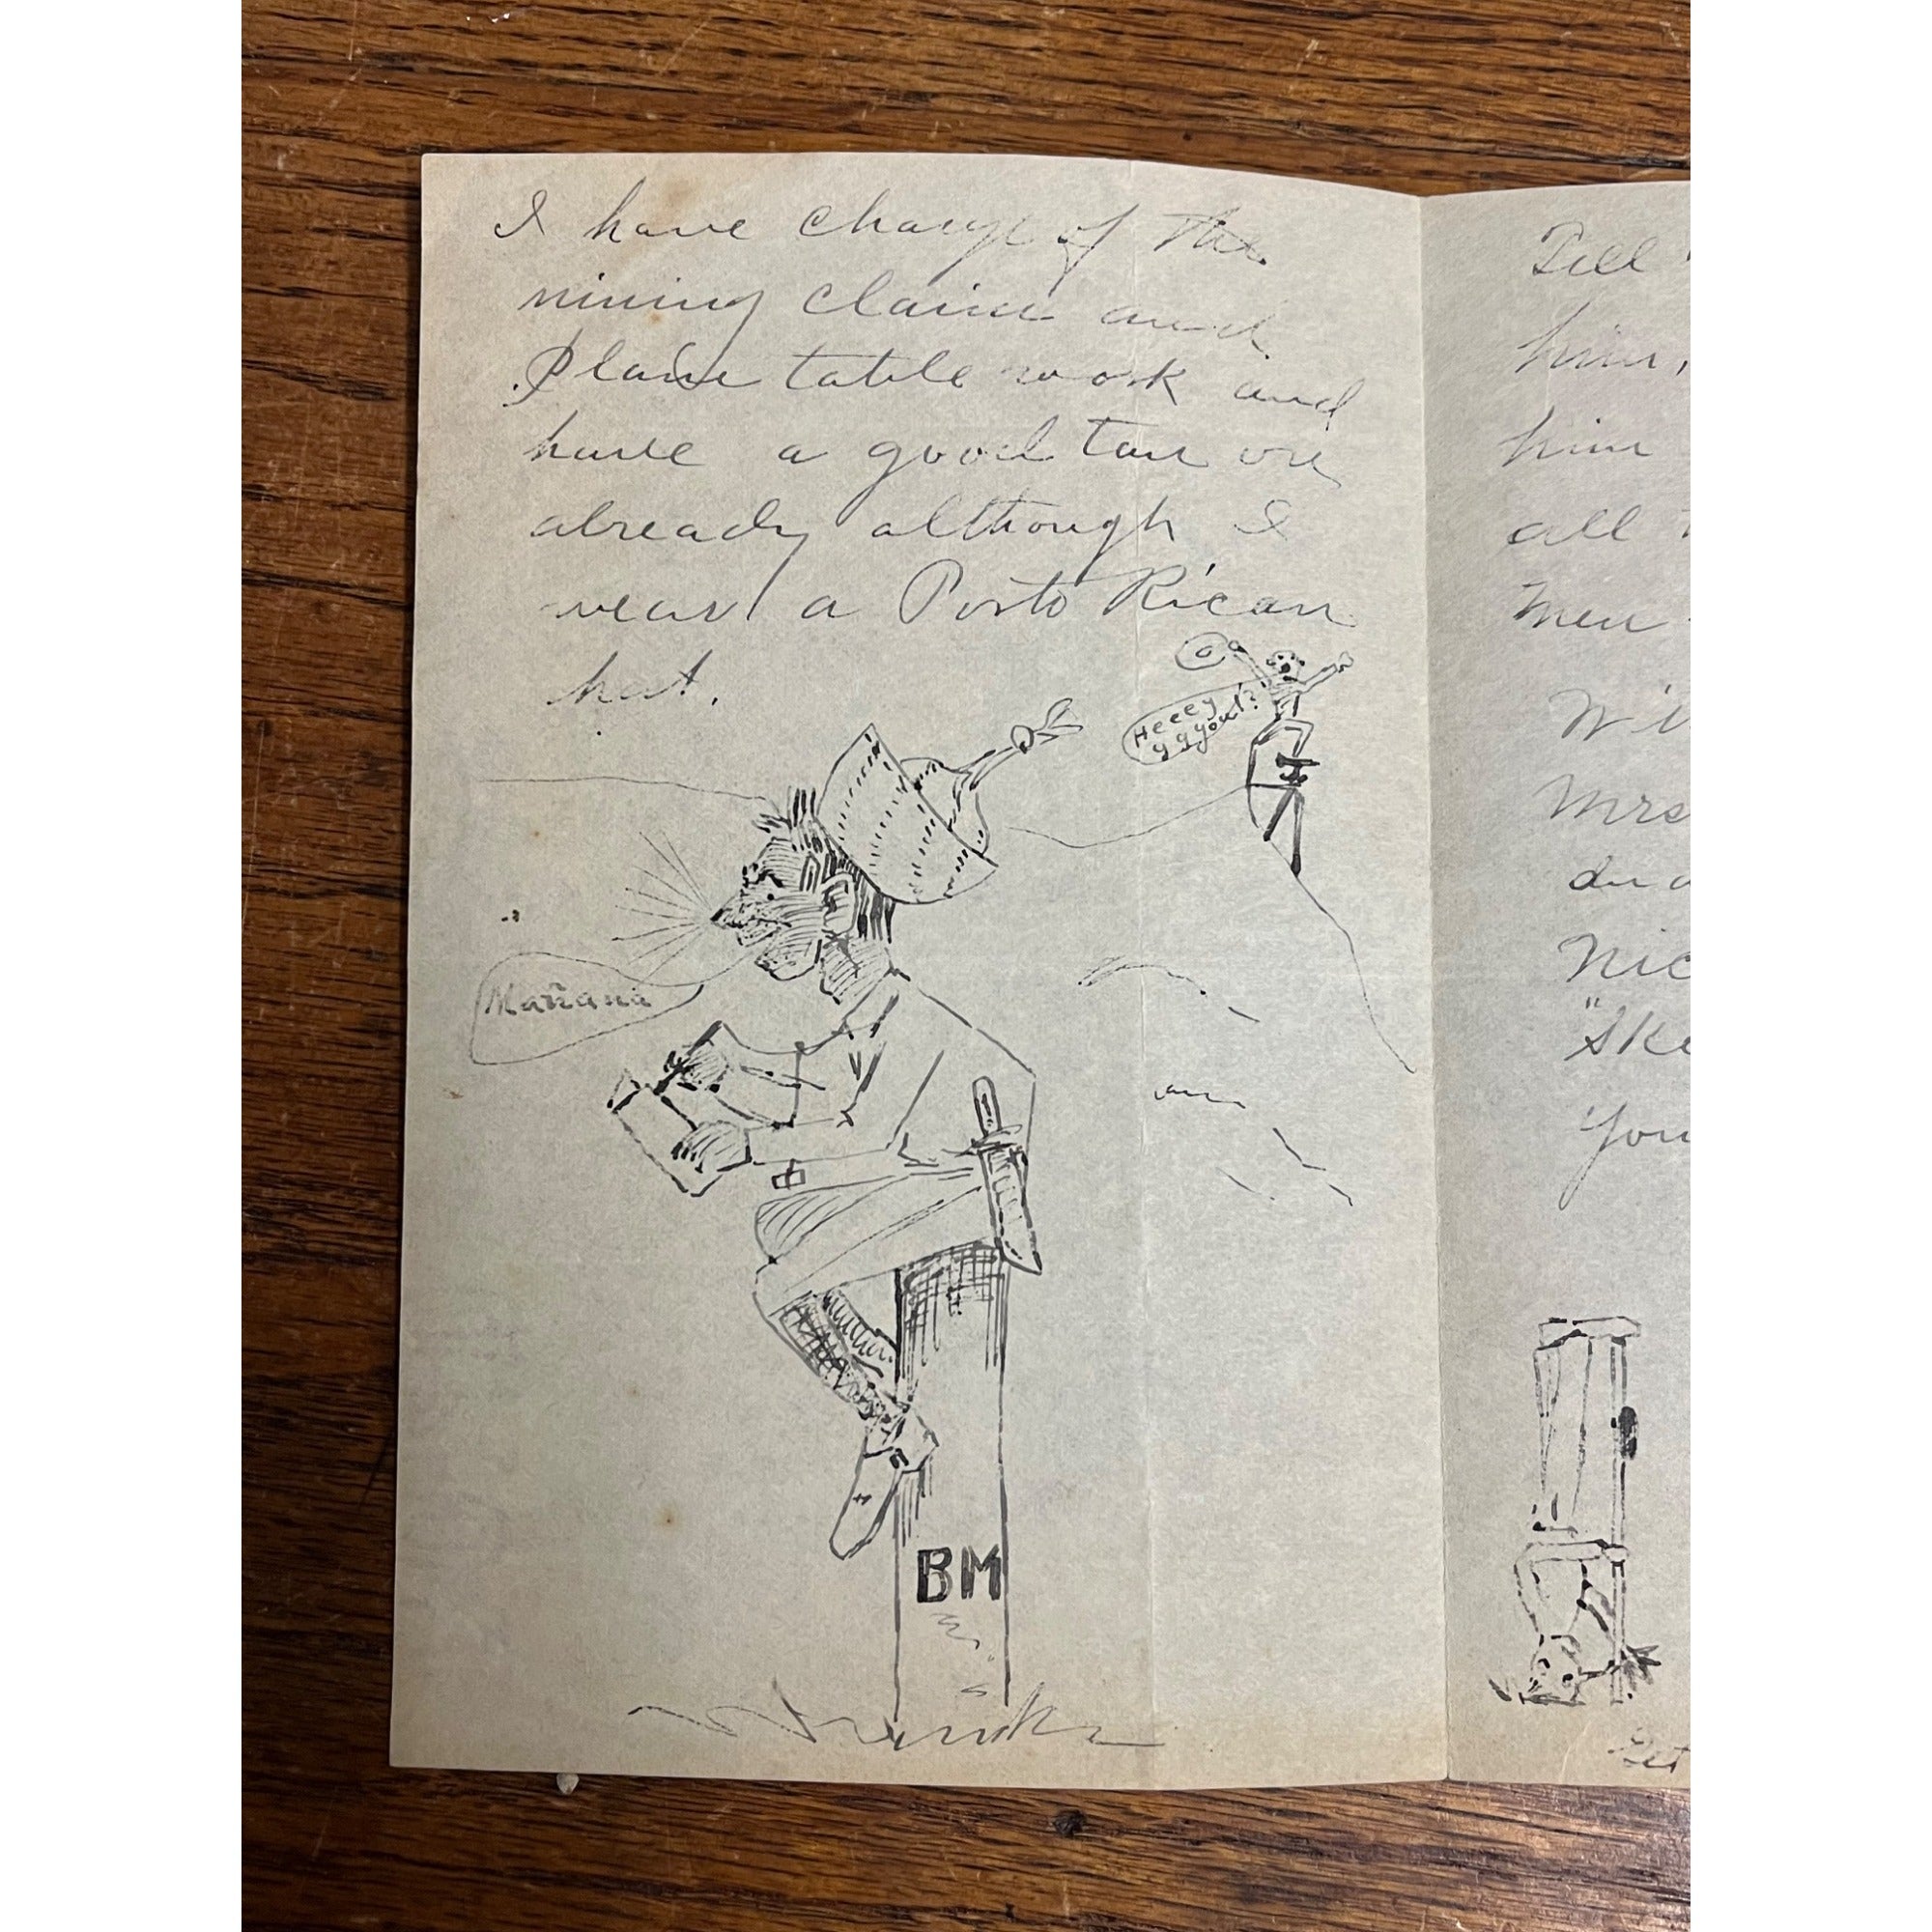 I have charge of the
mining claim and
Plane table work and
have a good tan on
already although I
wear a Porto Rican
hat.
Heeey
yyyou!?
Mañana
BM
Tell
him,
him
all
men
Mrs
"Ske
you
Get